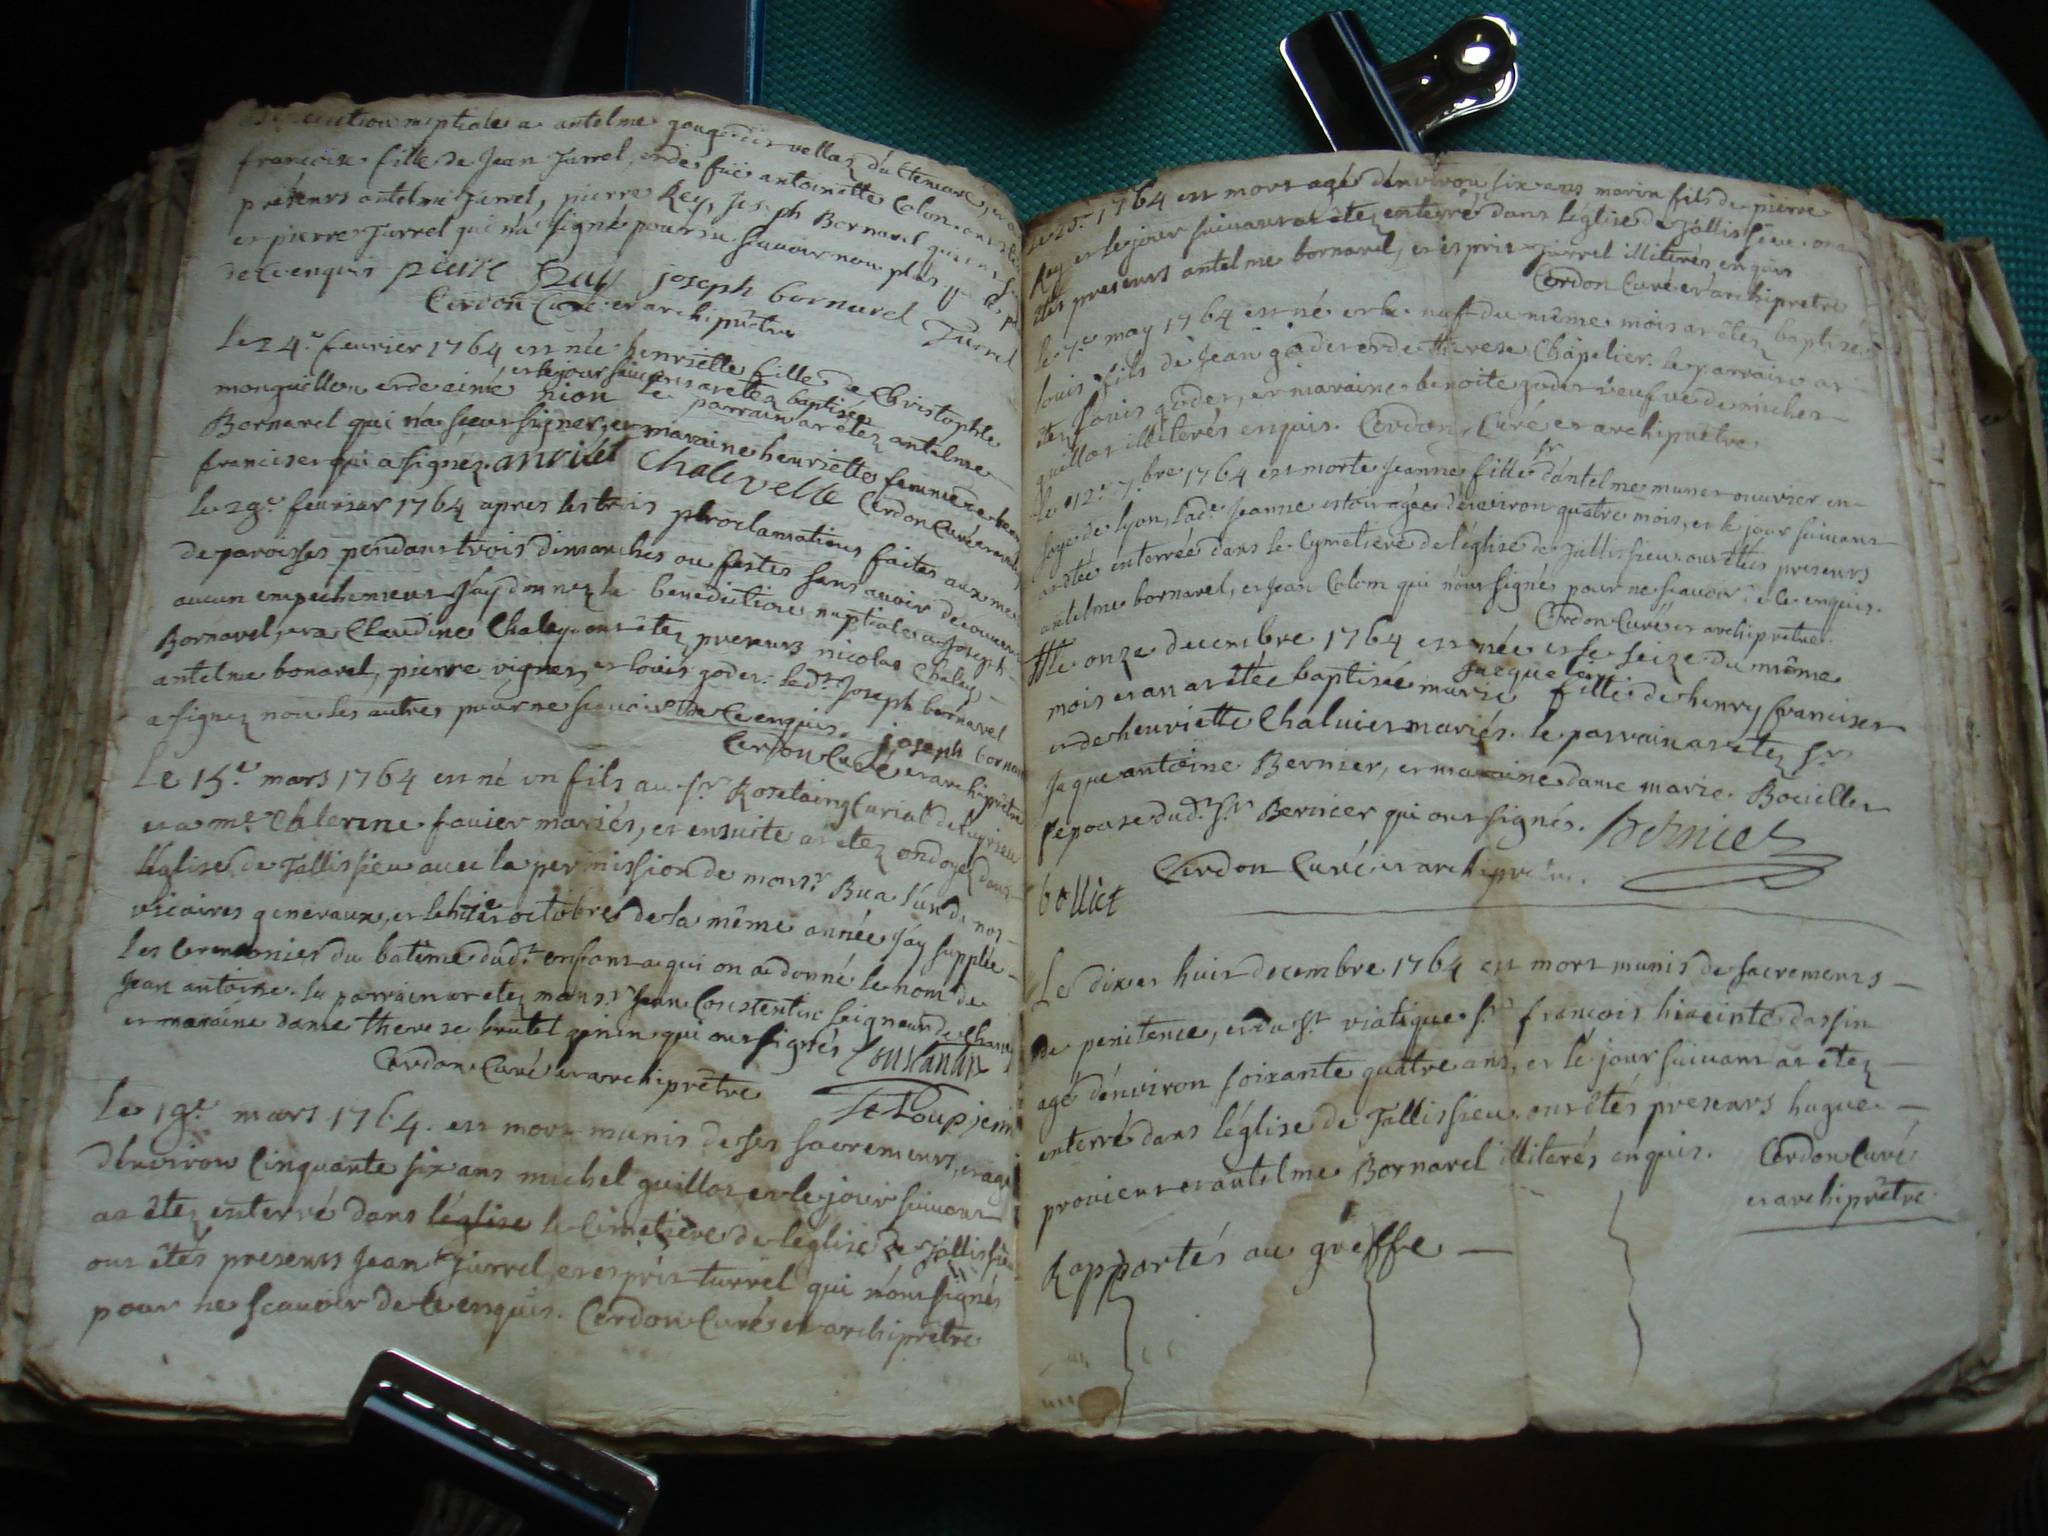 nuptiale a antelme
françoise fille de Jean Turrel, et de füe antoinette Colon. ont
présents antelme Turrel, pierre Rey, Joseph Bornarel qui ont
et pierre Turrel qui n'a signé pour ne scavoir non plus
de ce enquis pierre Ray joseph bornarel Turrel
Cerdon Curé et archiprêtre
le 24.e fevrier 1764 est née henriette fille de Christophle
et le jour suivant a etez baptisée
monguillon et de aimé nion le parrain a etez antelme
Bornarel qui n'a sceut signer, et maraine henriette femme de
franciset qui a signez. anriet Chalevelle Cerdon Curé
le 29.e fevrier 1764 apres les trois proclamations faites aux
de paroisses pendant trois dimanches ou festes sans avoir decouvert
aucun empechement j'ay donnez la benediction nuptiale a Joseph
Bornarel, et a Claudine Chaley. ont êtez presents nicolas Chaley,
antelme bonarel, pierre vignet, et louis godet. led.t Joseph bornarel
a signez non les autres pour ne scavoir de ce enquis. joseph bornare
Cerdon Curé et archiprêtre
Le 15.e mars 1764 est né un fils au s.r Rostaing Curial de
et a m.e Chterine favier mariés, et ensuite a etez ondoyé dans
l'église de Tallissieu avec la permission de mons.r Bua l'un de nos
vicaires generaux, et le octobre de la même année j'ay supplée
les ceremonies du batême dud.t enfant a qui on a donné le nom de
Jean antoine. le parrain a etez mons.r Jean Constentin seigneur de
et maraine dame therese brutel genin qui ont signés Constantin
Cerdon Curé et archiprêtre
Le 19.e mars 1764. est mort munis de ses sacrements, et agé
d'environ Cinquante six ans michel guillot et le jour suivant
at êtez enterré dans l'église le Cimetiere de l'église de Tallissieu
ont êtés presents Jean Turrel, et esprit turrel qui n'ont signés
pour ne scavoir de ce enquis. Cerdon Curé et archiprêtre
Le 25.e 1764 est mort agé d'environ six ans marin fils de pierre
Rey et le jour suivant at êtez enterré dans l'église de Tallissieu. ont
êtés presents antelme bornarel, et esprit Turrel illiterés enquis
Cerdon Curé et archiprêtre
le 7.e may 1764 est né et le neuf du même mois at êtez baptisé
louis fils de Jean godet et de therese Chapelier. le parrain at
êtez louis godet, et maraine benoite godet veufve de michel
guillot illiterés enquis. Cerdon Curé et archiprêtre
Le 12.e 7.bre 1764 est morte Jeanne fille d'antelme munet ouvrier en
soye de Lyon, lad.e Jeanne estoit agée d'environ quatre mois, et le jour suivant
at êtée enterrée dans le Cymetiere de l'église de Tallissieu. ont êtés presents
antelme bornarel, et Jean Colom qui n'ont signés pour ne scavoir de ce enquis.
Cerdon Curé et archiprêtre.
Le onze decembre 1764 est née et le seize du même
mois et an at êtée baptisée marie jacqueline fille de henry franciset
et de henriette Chaluiet mariés. le parrain at etez s.r
Jaque antoine Bernier, et maraine dame marie Boüillet
l'epouse dud.t s.r Bernier qui ont signés. Bernier
bolliet Cerdon Curé et archiprêtre.
Le dix et huit decembre 1764 est mort munis de sacrements
de penitence, et du s.t viatique s.r françois hiacinte dassin
agé d'environ soixante quatre ans, et le jour suivant at êtez
enterré dans l'église de Tallissieu. ont êtés présents hugue
provient et antelme Bornarel illiterés enquis. Cerdon Curé
et archiprêtre
Rapportés au greffe